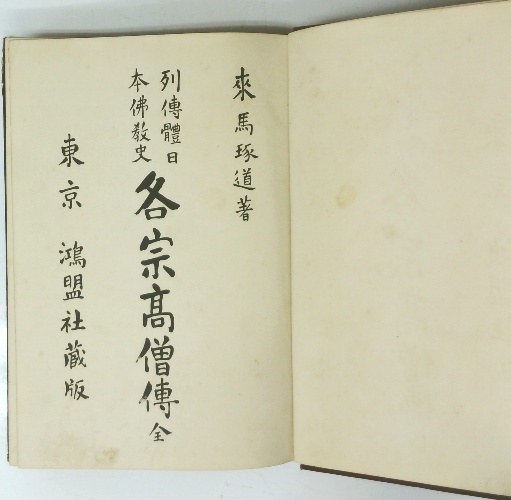 來馬琢道著
列傳體日
本佛教史
各宗高僧傳全
東京 鴻盟社藏版